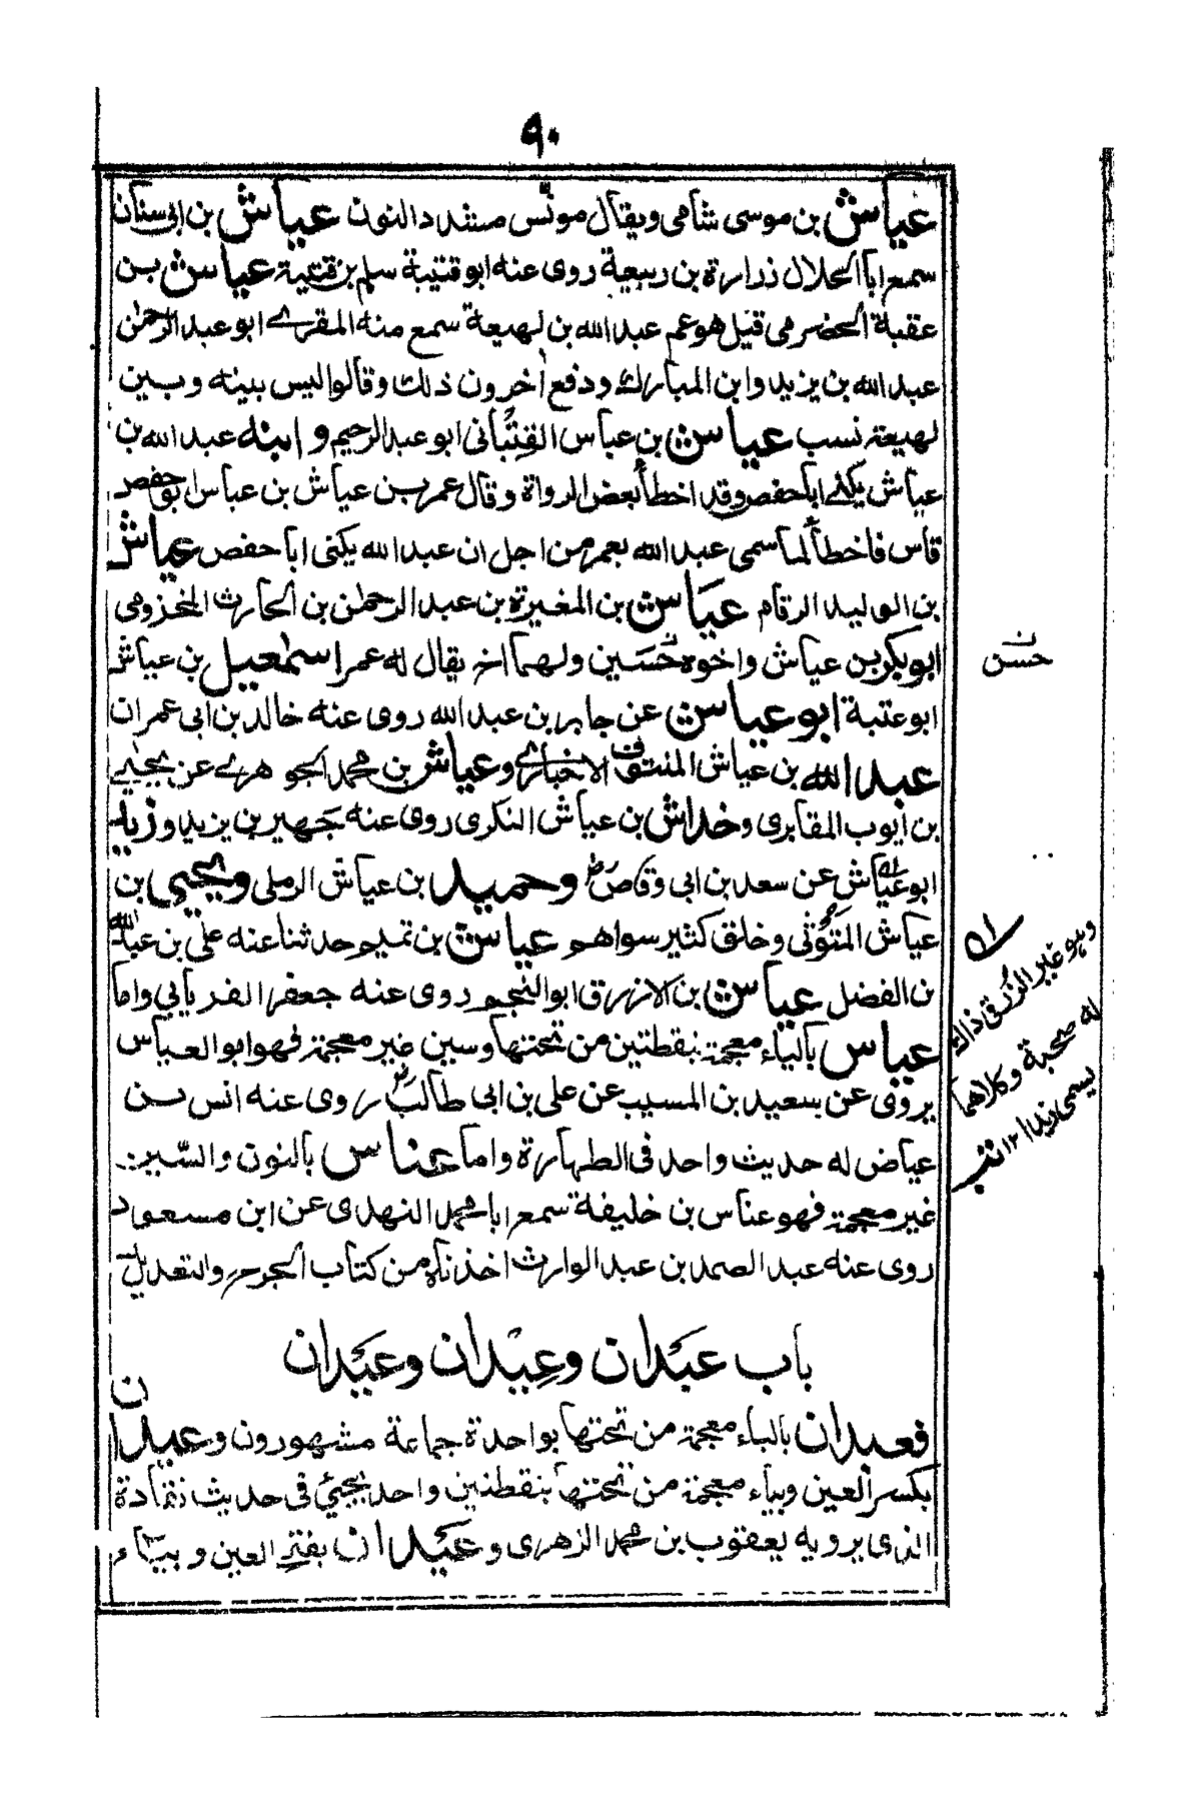 ٩٠
عياش بن موسى شامى ويقال مونّس مشدد النون عياش بن ابى سنان
سمع ابا الحلال زرارة بن ربيعة روى عنه ابو قتيبة سلم بن قتيبة عياش بن
عقبة الحضرمى قيل هو عم عبد الله بن لهيعة سمع منه المقرے ابو عبد الرحمٰن
عبد الله بن يزيد وابن المبارك ودفع اٰخرون ذلك وقالوا ليس بينه وبين
لهيعة نسب عياش بن عباس القِتْبانى ابو عبد الرحيم و ابنه عبد الله بن
عياش يكنى ابا حفص وقد اخطأ بعض الرواة وقال عمر بن عياش بن عباس ابو حفص
قاس فاخطأ لما سمى عبد الله بعمر من اجل ان عبد الله يكنى ابا حفص عياش
بن الوليد الرقام عيّاش بن المغيرة بن عبد الرحمٰن بن الحارث المخزومى
ابو بكر بن عياش واخوه حُسَين ولهما اخ يقال له عمر اسمٰعيل بن عياش
ابو عتبة ابو عياش عن جابر بن عبد الله روى عنه خالد بن ابى عمران
عبد الله بن عياش المنتوف الاخبارے وعياش بن محمد الجوهرے عن يحيىٰ
بن ايوب المقابرى وخداش بن عياش النكرى روى عنه جَهير بن يزيد وزيد
ابو عيّاش عن سعد بن ابى وقاص وحميد بن عياش الرملى ويحيى بن
عياش المَتُّوثى وخلق كثير سواهم عياش بن تميم حدثنا عنه على بن عبد الله
بن الفضل عياش بن الازرق ابو النجم روى عنه جعفر الفريابي واما
عياس بالياء معجمة بنقطتين من تحتها وسين غير معجمة فهو ابو العياس
يروى عن سعيد بن المسيب عن على بن ابى طالب روى عنه انس بن
عياض له حديث واحد فى الطهارة واما عناس بالنون والسّين
غير معجمة فهو عناس بن خليفة سمع ابا محمد النهدى عن ابن مسعود
روى عنه عبد الصمد بن عبد الوارث اخذناه من كتاب الجرح والتعديل
باب عَبْدان وعِيْدان وعَيْدان
فعبدان بالباء معجمة من تحتها بواحدة جماعة مشهورون وعيدان
بكسر العين وبياء معجمة من تحتها بنقطتين واحد يجيئ فى حديث نقادة
الذى يرويه يعقوب بن محمد الزهرى وعَيْدان بفتح العين وبياء
حسن
وهو غير الزرقى ذاك
له صحبة وكلاهما
يسمى زيدا ١٢